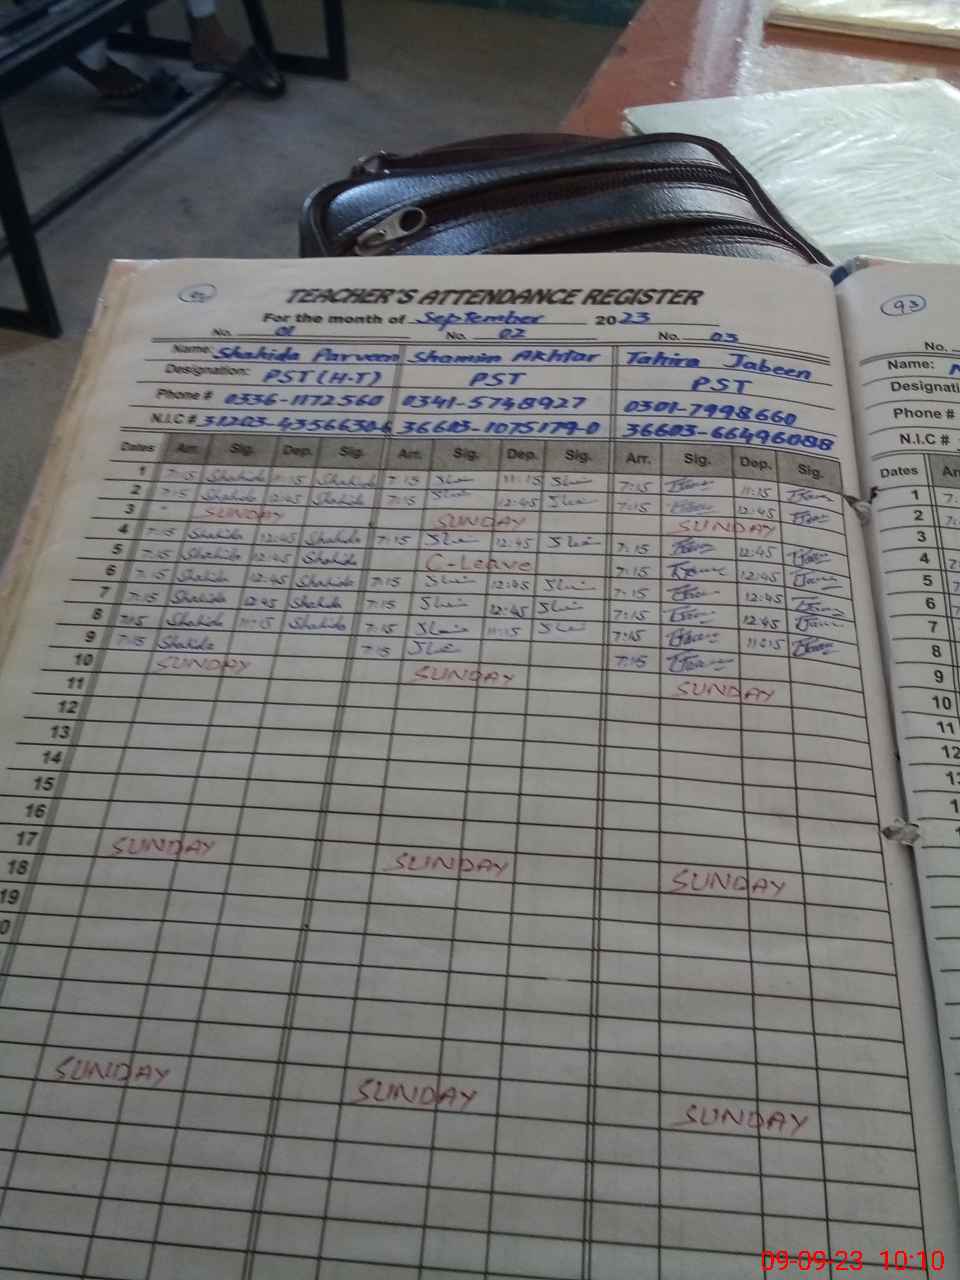 93
TEACHER'S ATTENDANCE REGISTER
For the month of September 2023
No. 01 No. 02 No. 03 No.
Name: Shahida Parveen Shamim Akhtar Tahira Jabeen Name:
Designation: PST (H-T) PST PST Designati
Phone # 0336-1172560 0341-5748927 0301-7998660 Phone #
N.I.C # 31203-4356630-6 36603-1075179-0 36603-6649608-8 N.I.C #
Dates Arr. Sig. Dep. Sig. Arr. Sig. Dep. Sig. Arr. Sig. Dep. Sig. Dates Ar
1 7:15 Shahida 11:15 Shahida 7:15 11:15 7:15 11:15 1
2 7:15 Shahida 12:45 Shahida 7:15 12:45 7:15 12:45 2
3 SUNDAY SUNDAY SUNDAY 3
4 7:15 Shahida 12:45 Shahida 7:15 12:45 7:15 12:45 4
5 7:15 Shahida 12:45 Shahida C-Leave 7:15 12:45 5
6 7:15 Shahida 12:45 Shahida 7:15 12:45 7:15 12:45 6
7 7:15 Shahida 12:45 Shahida 7:15 12:45 7:15 12:45 7
8 7:15 Shahida 11:15 Shahida 7:15 11:15 7:15 11:15 8
9 7:15 Shahida 7:15 7:15 9
10 SUNDAY SUNDAY SUNDAY 10
11 11
12 12
13
14
15
16
17 SUNDAY SUNDAY SUNDAY
18
19
SUNDAY SUNDAY SUNDAY
09-09-23 10:10